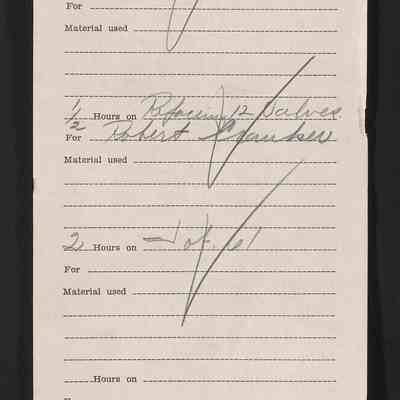 For
Material used
1/2 Hours on Refacing 12 Valves
For Robert
Material used
2 Hours on
For
Material used
Hours on